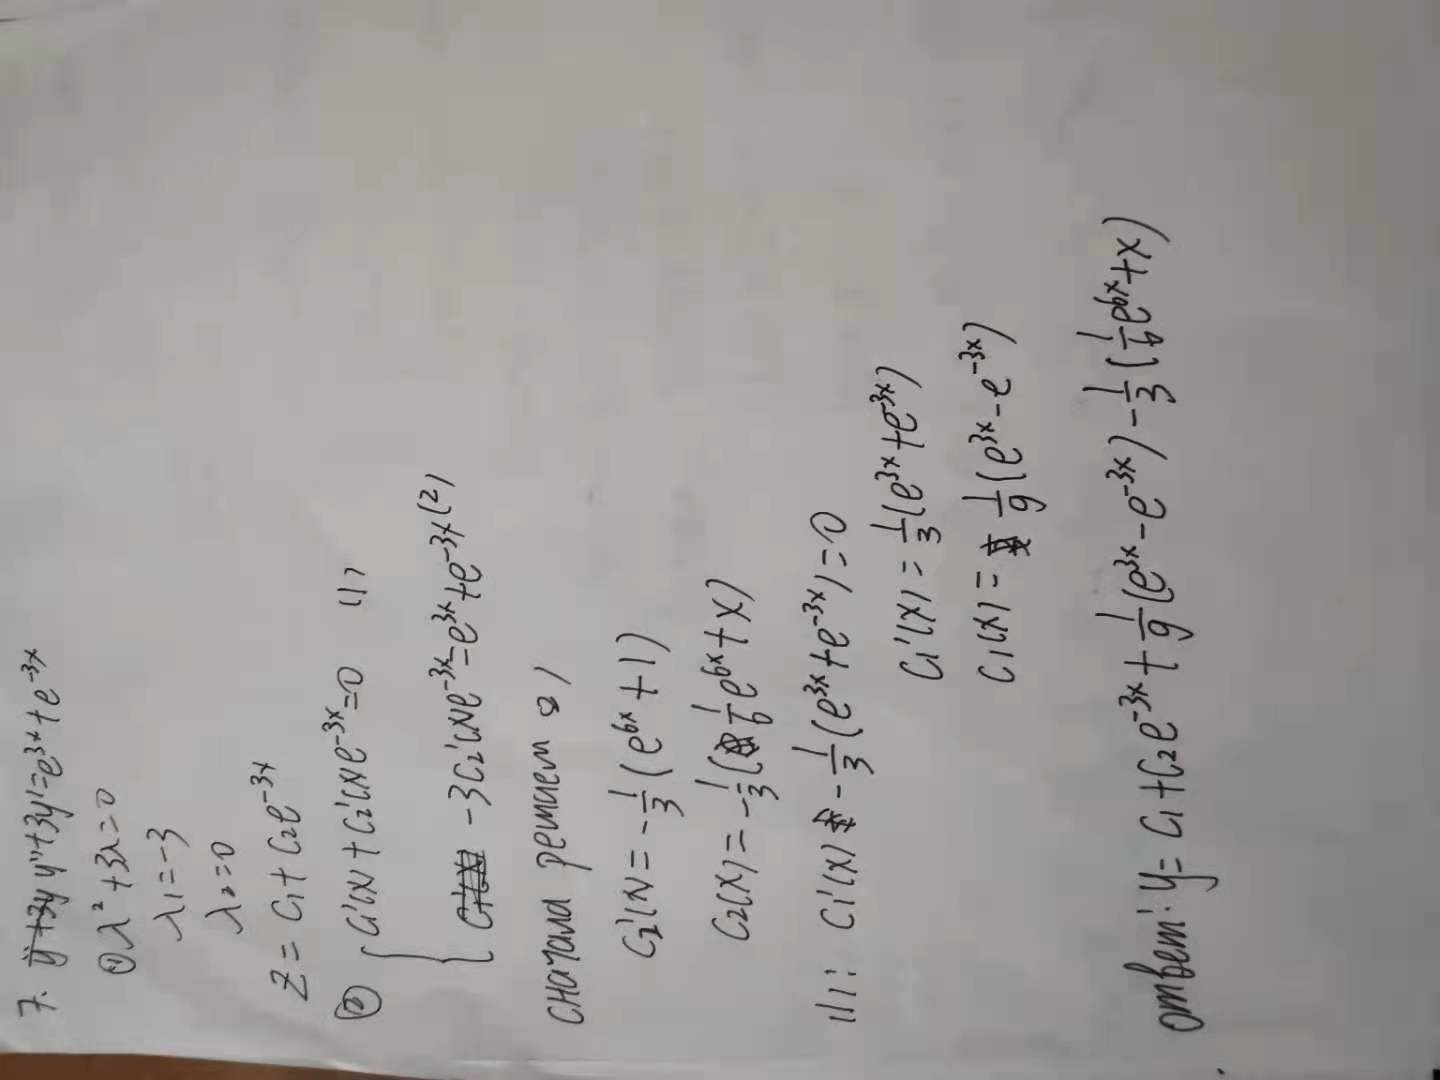 7. y''+3y'=e^{3x}+e^{-3x}
① λ²+3λ=0
λ1=-3
λ2=0
Z= C1+C2e^{-3x}
② { C1'(x)+C2'(x)e^{-3x}=0 (1)
-3C2'(x)e^{-3x}=e^{3x}+e^{-3x} (2)
сначала решаем 2)
C2'(x)=-1/3(e^{6x}+1)
C2(x)=-1/3(1/6e^{6x}+x)
(1): C1'(x)-1/3(e^{3x}+e^{-3x})=0
C1'(x)=1/3(e^{3x}+e^{-3x})
C1(x)=1/9(e^{3x}-e^{-3x})
ответ: y=C1+C2e^{-3x}+1/9(e^{3x}-e^{-3x})-1/3(1/6e^{6x}+x)